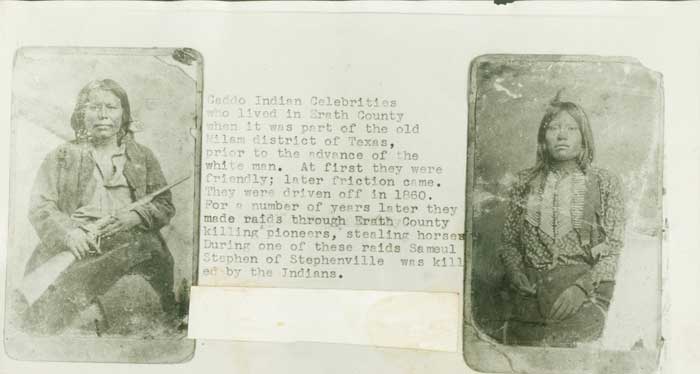 Caddo Indian Celebrities
who lived in Erath County
when it was part of the old
Milam district of Texas,
prior to the advance of the
white man.  At first they were
friendly; later friction came.
They were driven off in 1860.
For a number of years later they
made raids through Erath County
killing pioneers, stealing horses
During one of these raids Sameul
Stephen of Stephenville  was kill
ed by the Indians.